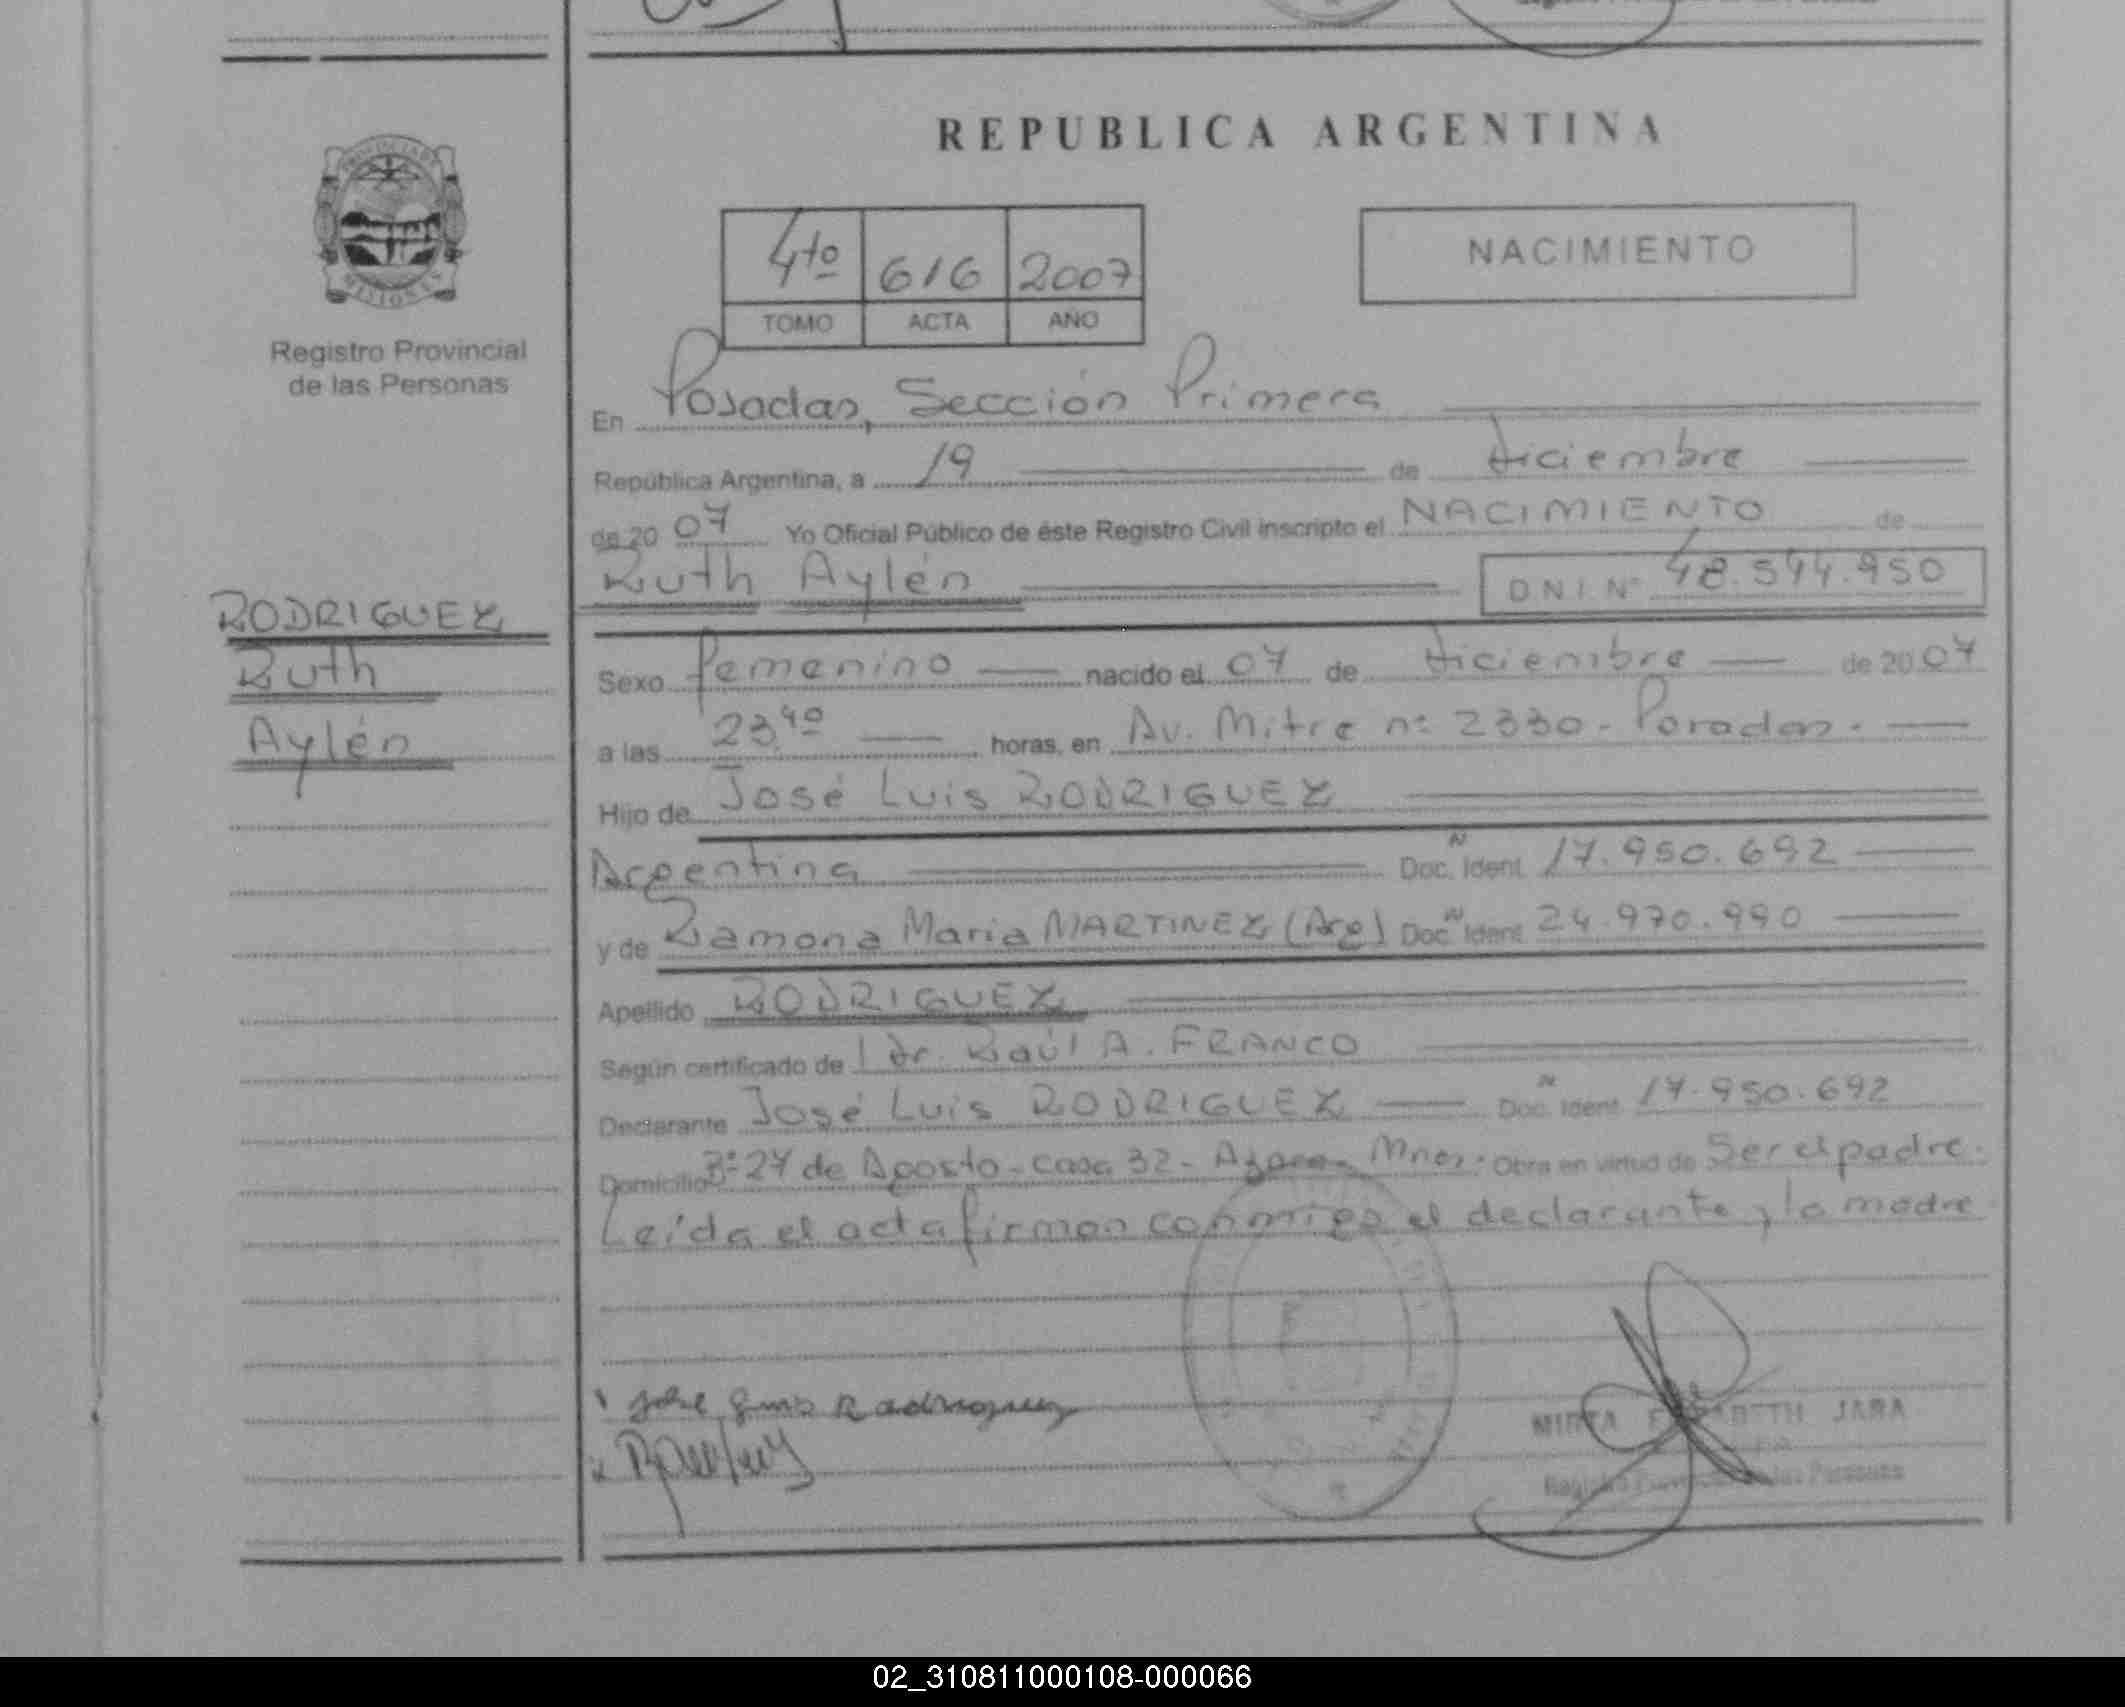 REPUBLICA ARGENTINA
PROVINCIA DE
MISIONES
Registro Provincial
de las Personas
4to 616 2007
TOMO ACTA AÑO
NACIMIENTO
En Posadas, Sección Primera
República Argentina, a 19 de diciembre
de 20 07 Yo Oficial Público de éste Registro Civil inscripto el NACIMIENTO de
Ruth Aylén D.N.I. Nº 48.544.950
RODRIGUEZ
Ruth
Aylén
Sexo femenino nacido el 07 de diciembre de 20 07
a las 23,40 horas, en Av. Mitre nº 2330 - Posadas.
Hijo de José Luis RODRIGUEZ
Argentina Doc. Ident. 17.950.692
y de Ramona Maria MARTINEZ (Arg) Doc. Ident. 24.970.990
Apellido RODRIGUEZ
Según certificado de Dr. Raúl A. FRANCO
Declarante José Luis RODRIGUEZ Doc. Ident. 17.950.692
Domicilio Bº 27 de Agosto - casa 32 - Mnes. Obra en virtud de Ser el padre.
Leída el acta firman conmigo el declarante y la madre
Jose Luis Rodriguez
MIRTA ELIZABETH JARA
Registro Provincial de las Personas
02_310811000108-000066